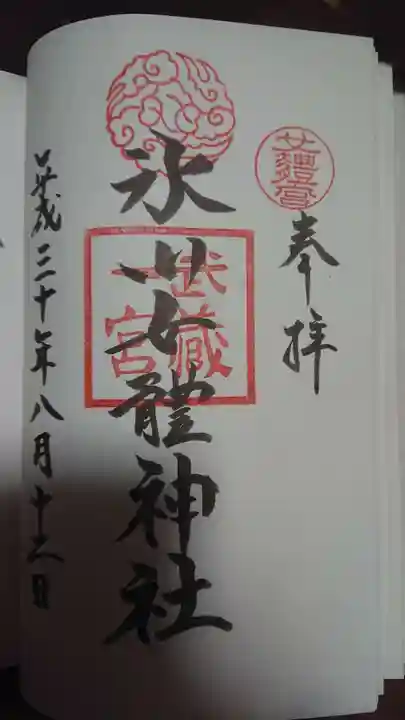 奉拝
女體宮
氷川女體神社
武藏
一宮
平成三十年八月十日